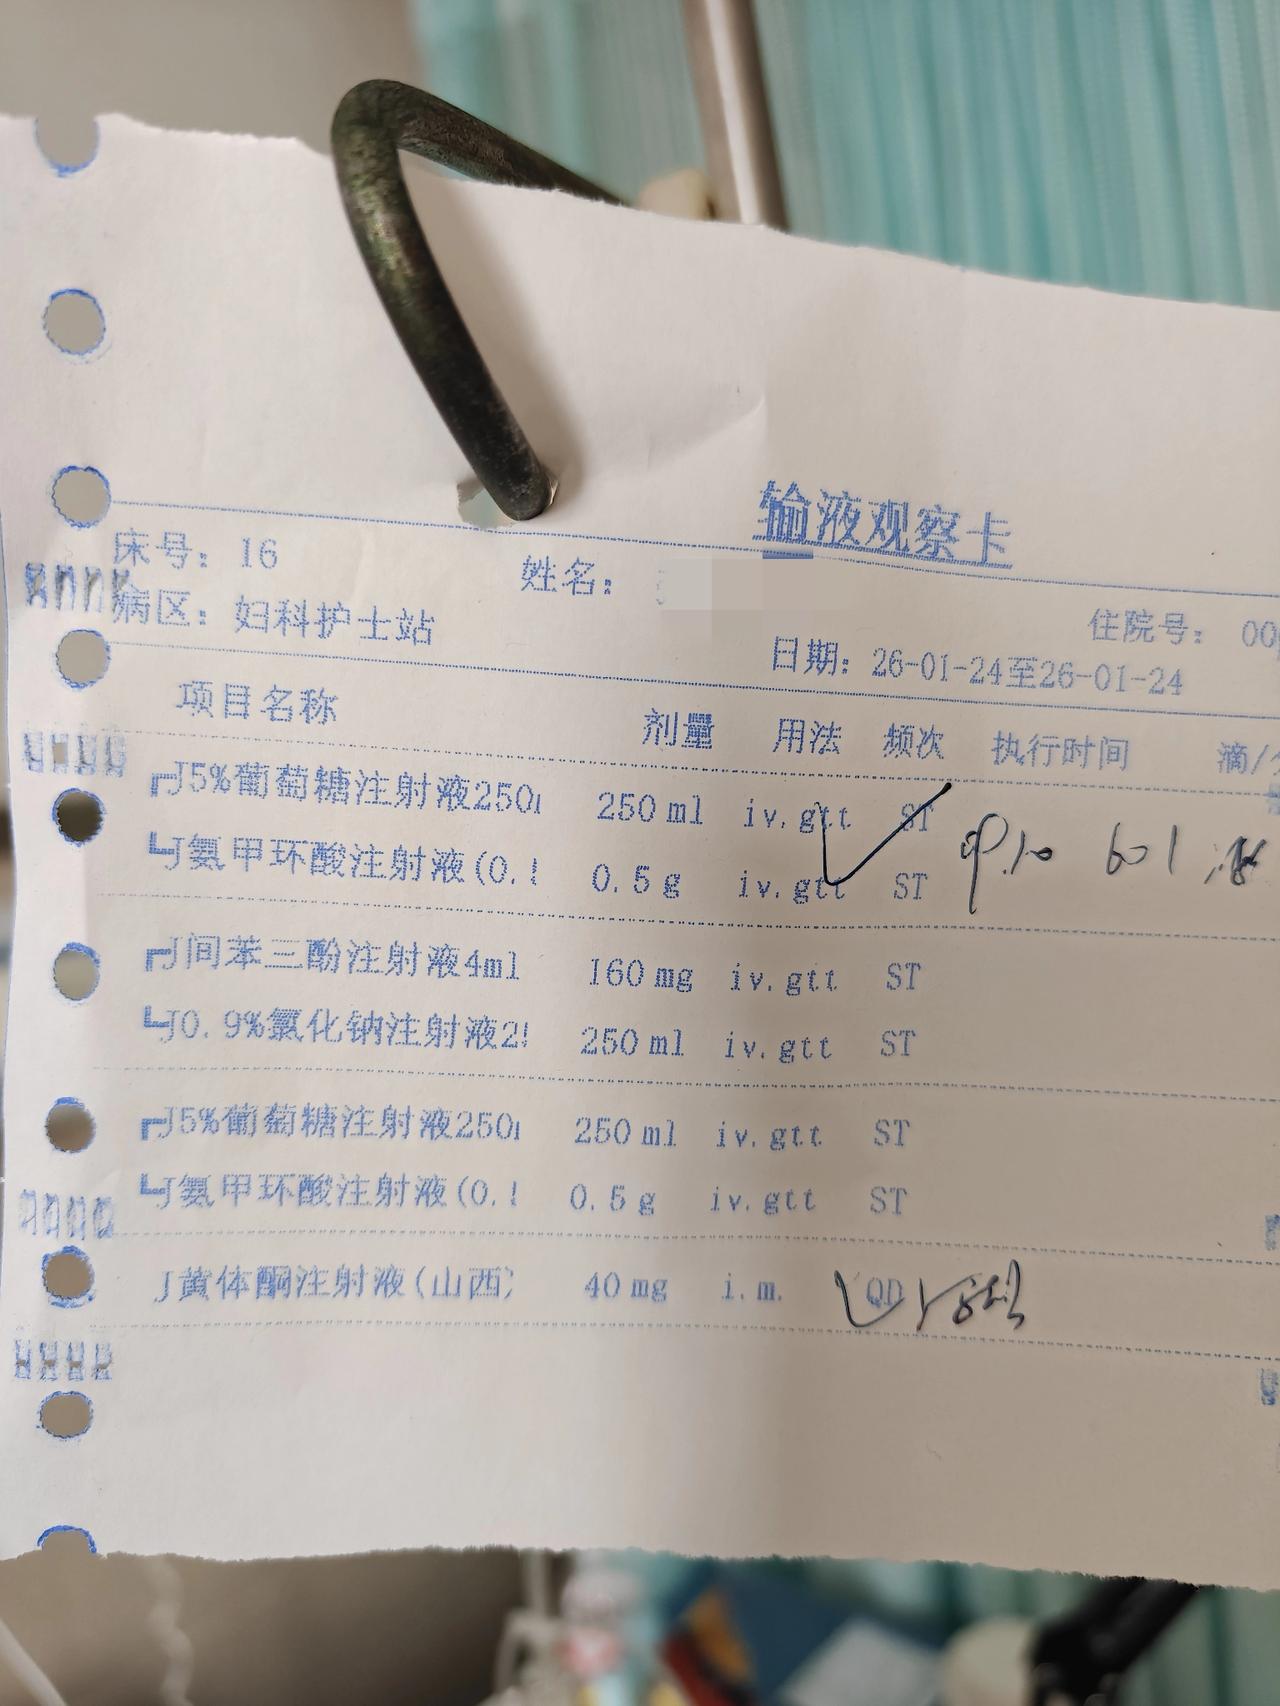 输液观察卡
床号：16 姓名：
病区：妇科护士站 住院号：00
日期：26-01-24至26-01-24
项目名称 剂量 用法 频次 执行时间 滴/分
┌J5%葡萄糖注射液250 250ml iv.gtt ST
└J氨甲环酸注射液(0. 0.5g iv.gtt ST
┌J间苯三酚注射液4ml 160mg iv.gtt ST
└J0.9%氯化钠注射液2 250ml iv.gtt ST
┌J5%葡萄糖注射液250 250ml iv.gtt ST
└J氨甲环酸注射液(0. 0.5g iv.gtt ST
J黄体酮注射液(山西) 40mg i.m. QD